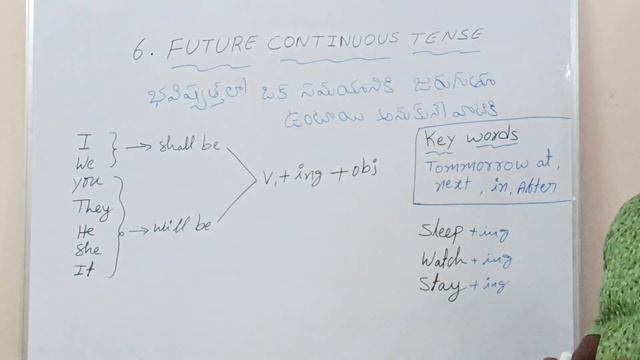 6. FUTURE CONTINUOUS TENSE
భవిష్యత్తులో ఒక సమయానికి జరుగుతూ
ఉంటాయి అనుకునే వాటికి
I
We
→ shall be
you
They
He
She
It
→ will be
V₁ + ing + obj
Key words
Tommorrow at,
next, in, After
Sleep + ing
Watch + ing
Stay + ing